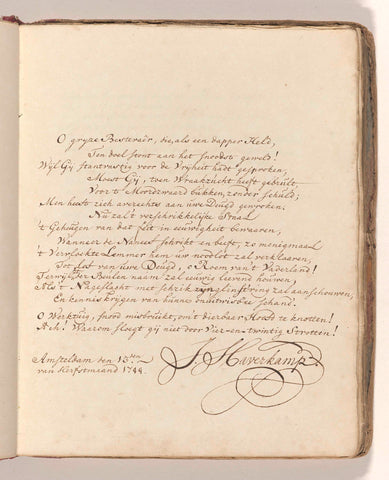 O gryze Bestevaêr, die, als een dapper Held,
Ten doel stont aan het snoodst geweld!
Wyl Gij stantvastig voor de Vryheit hadt gesproken,
Moest Gij, toen Wraakzucht heeft gebruld,
Voor 't Moordzwaard bukken, zonder schuld;
Men heeft zich averechts aan uwe Deugd gewroken.
Nu zal 't verschrikkelijke Staal
't Geheugen van dat feit in eeuwigheit bewaeren,
Wanneer de Naneef schrikt en beeft, zo menigmaal
't Vervloekte Lemmer hem uw noodlot zal verklaaren,
Tot lof van uwe Deugd, o Roem van 't Vaderland!
Terwyl der Beulen naam zal eeuwig levend houwen,
Als 't Nageslaght met schrik zyn glinstring zal aanschouwen,
En kennis krygen van hunne schand.
O Werktuig, snood misbruikt, om 't dierbaar Hooft te knotten!
Ach! Waerom sloegt gij niet door Vier-en-twintig Strotten!
Amsteldam den 13den
van Herfstmaand 1744.
S. Haverkamp.